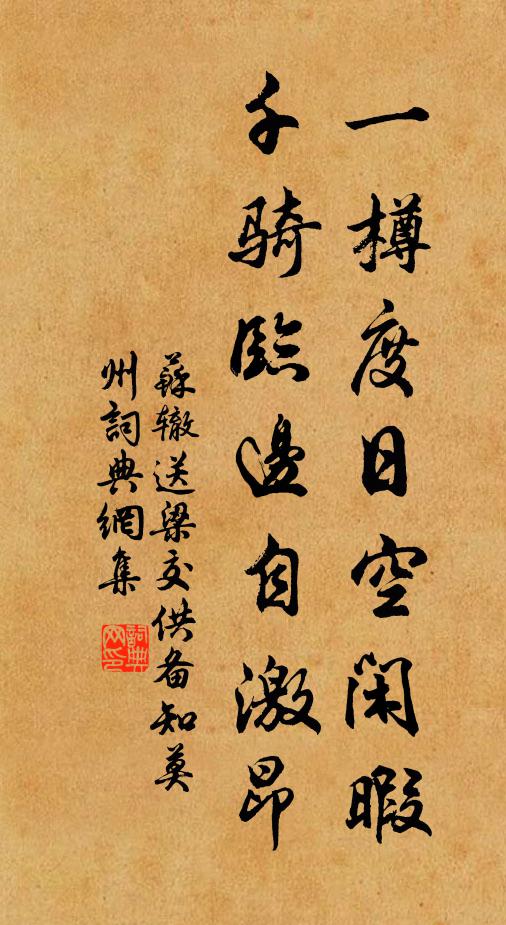 一樽度日空閑暇
千騎臨邊自激昂
蘇轍送梁交供备知莫
州詞典網集
詞典
网印